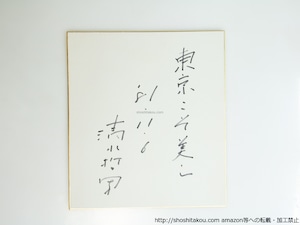 東京こそ美し
'81.11.6
清水哲男
http://shoshitakou.com
http://shoshitakou.com amazon等への転載・加工禁止